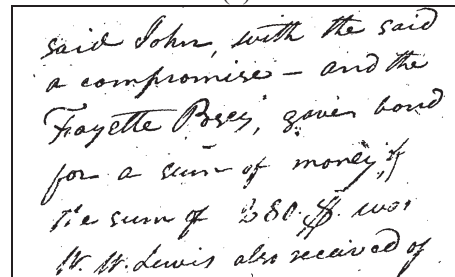 said John, with the said
a compromise – and the
Fayette Posey, gaven bond
for a sum of money, of
the sum of 280.$. was
W. W. Lewis also received of